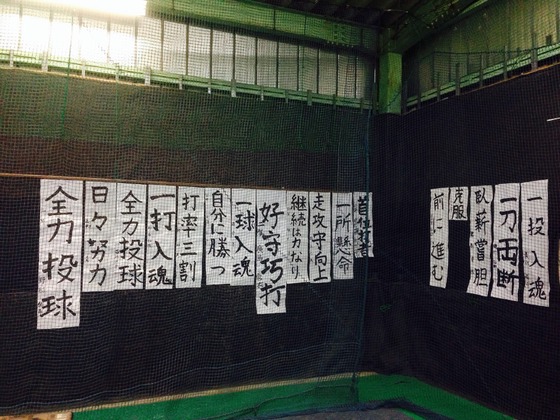 一投入魂
一刀両断
臥薪嘗胆
克服
前に進む
首位打者
一所懸命
走攻守向上
継続は力なり
好守巧打
一球入魂
自分に勝つ
打率三割
一打入魂
全力投球
日々努力
全力投球